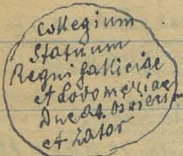 Collegium
Statuum
Regni Galliciae
et Lodomeriae
Ducat. Osviec.
et Zator